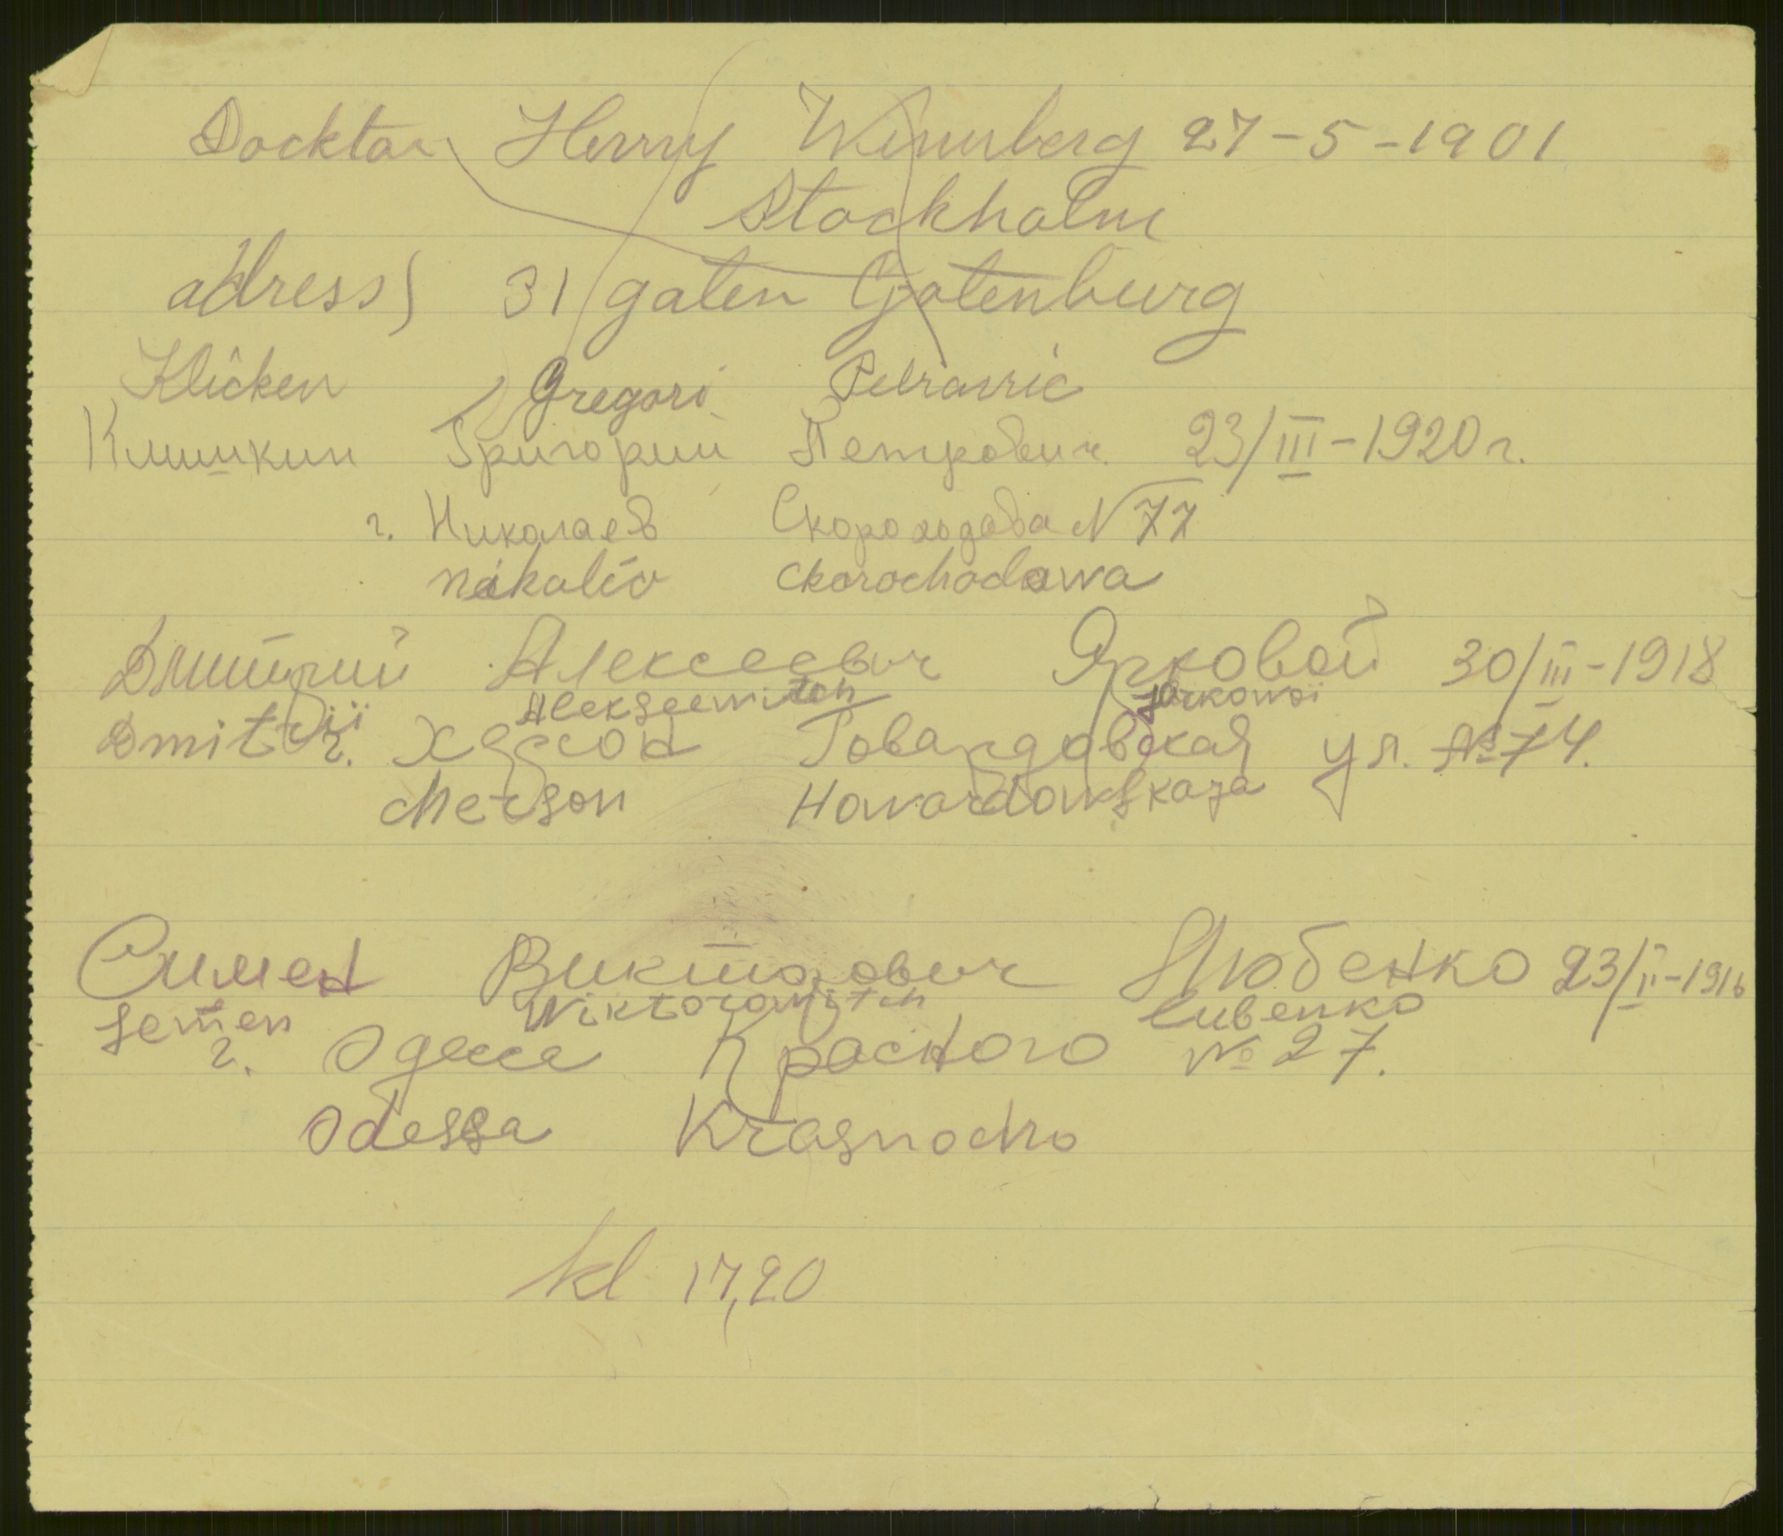 Docktor Henry Wennberg 27-5-1901
Stockholm
adress) 31 gaten Gotenburg
Klicken Gregori Petrovric
Климкин Григорий Петрович 23/III-1920г.
г. Николаев Скороходова N 77
Nikaliv Ckorochodowa
Дмитрий Алексеевич Ярковой 30/III-1918
Dmitrij Alekseewitch Jarkowoi
г. Херсон Говардовская ул. №74.
Cherson Howardowskaja
Симен Викторович Любенко 23/II-1916
Semen Wiktorowitch Lubenko
г. Одесса Красного № 27.
Odessa Krasnocho
kl 17,20